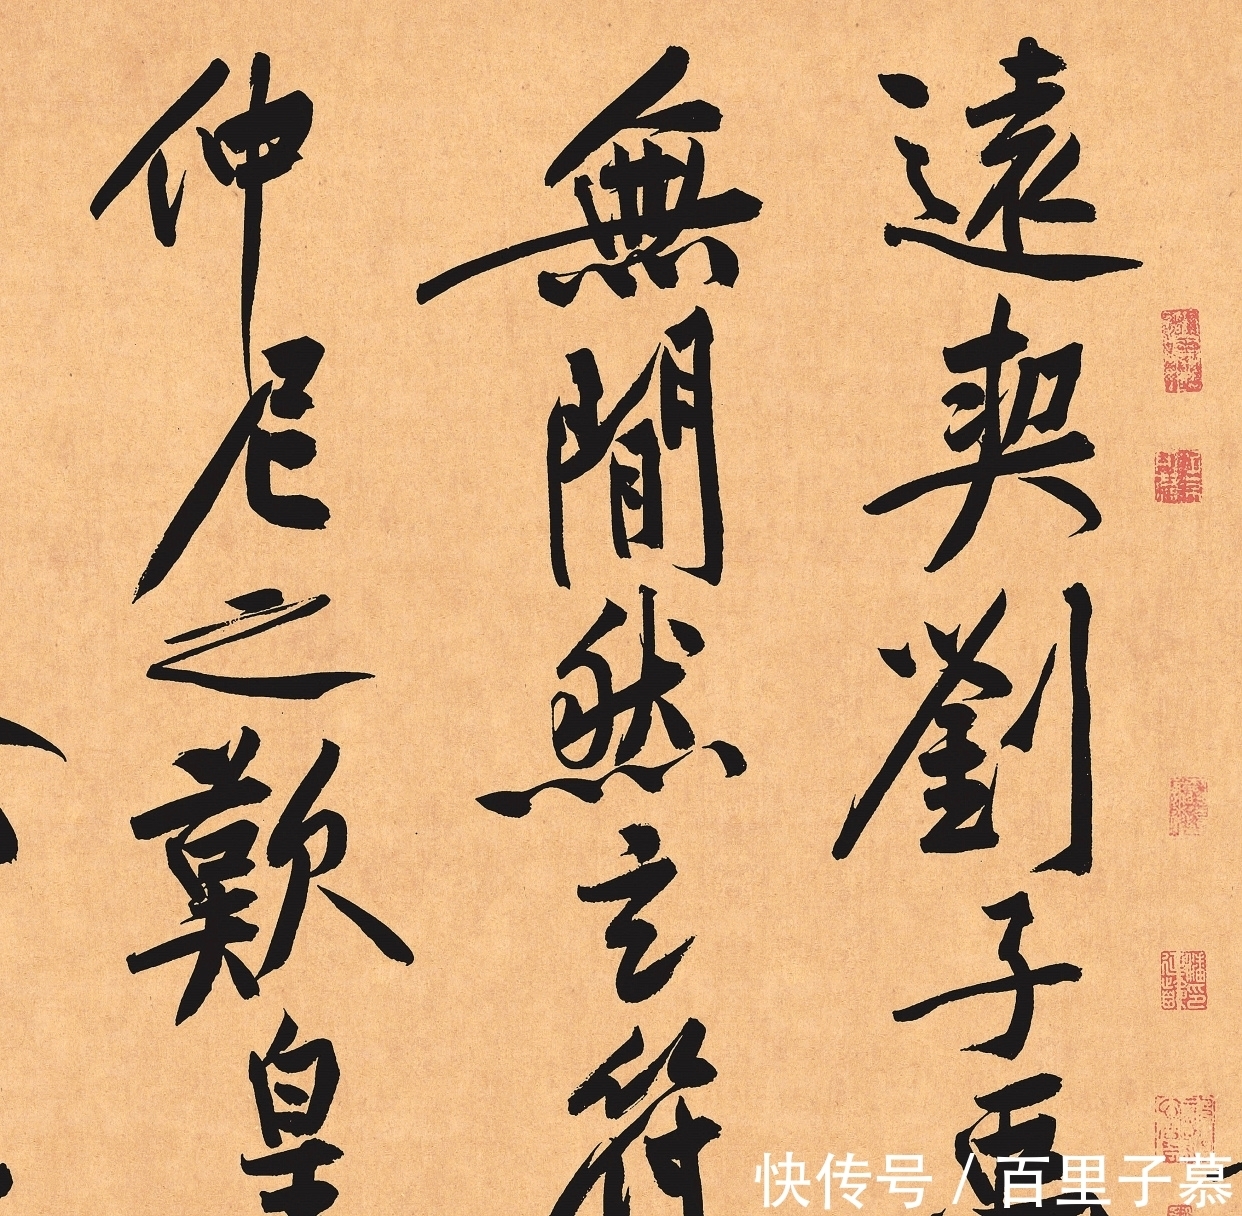 遠契劉子
無閒然玄符
仲尼之歎皇
快传号/百里子慕